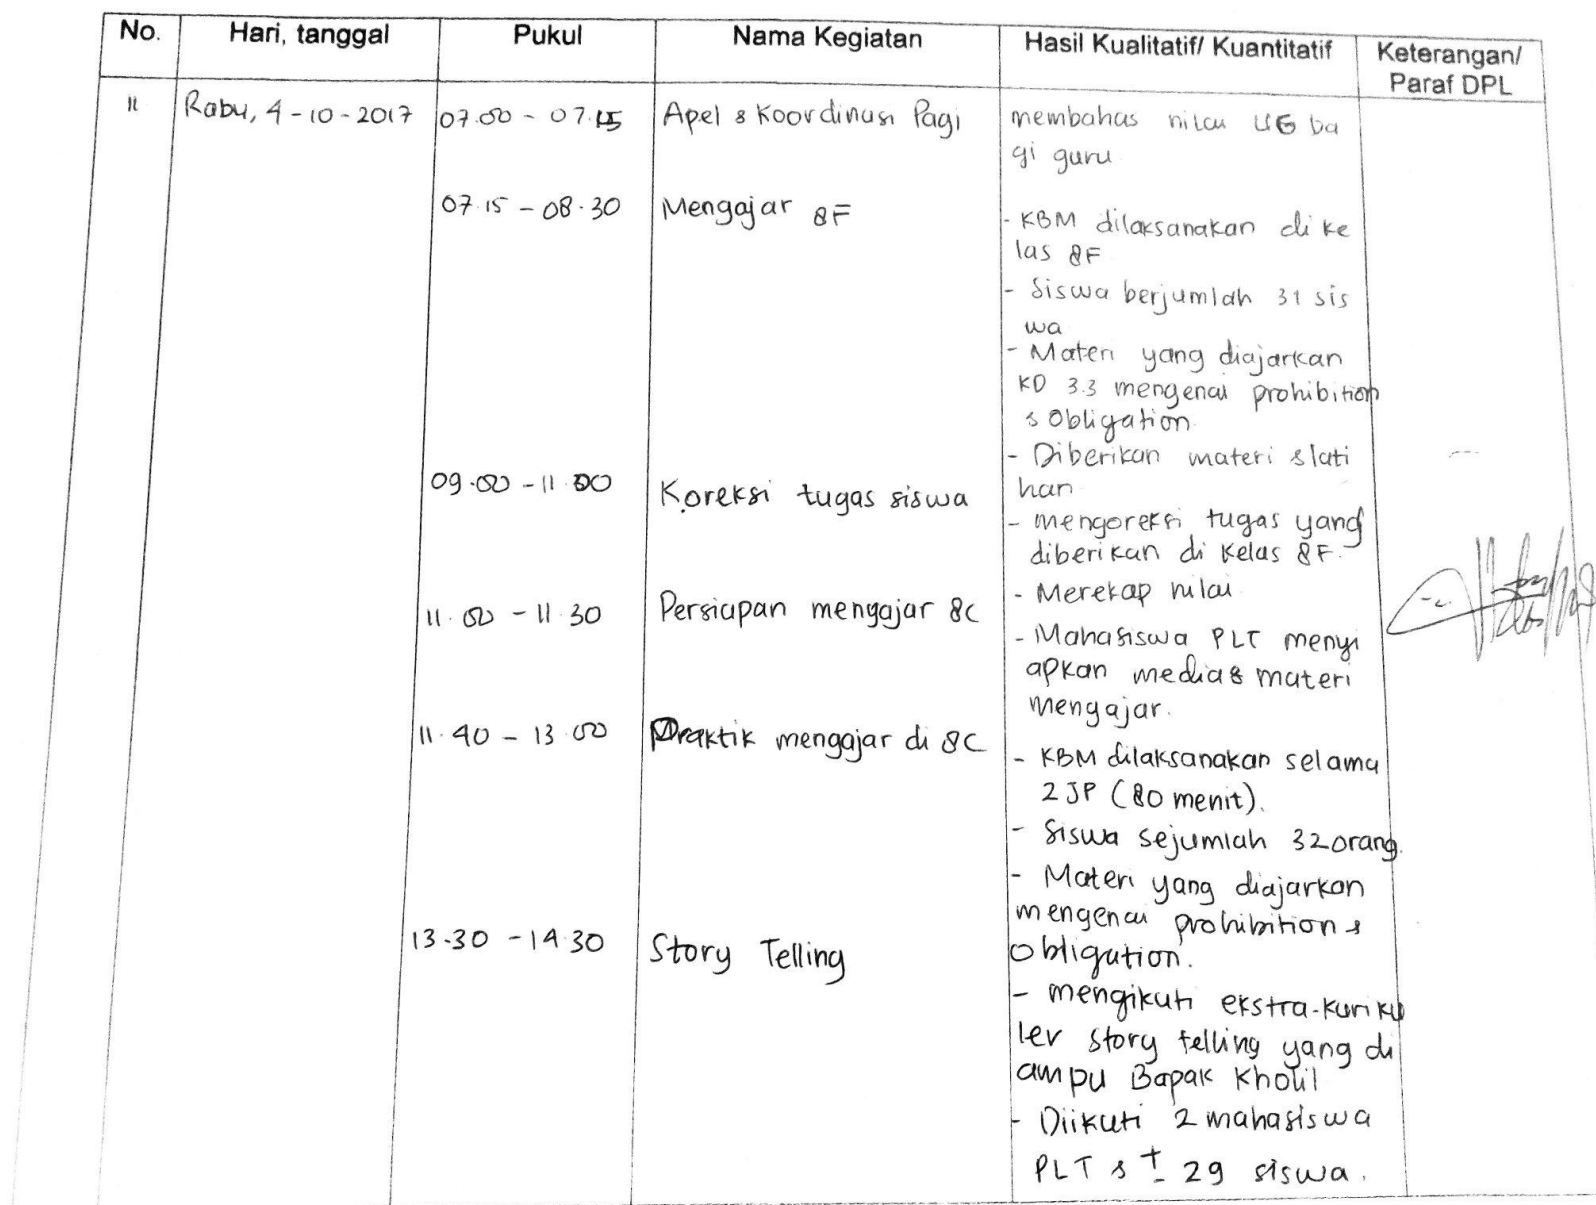 No. Hari, tanggal Pukul Nama Kegiatan Hasil Kualitatif/ Kuantitatif Keterangan/
Paraf DPL
11 Rabu, 4-10-2017 07.00 - 07.15 Apel & Koordinasi Pagi membahas nilai UG ba
gi guru
07.15 - 08.30 Mengajar 8F
- KBM dilaksanakan di ke
las 8F
- Siswa berjumlah 31 sis
wa
- Materi yang diajarkan
KD 3.3 mengenai prohibition
& Obligation.
- Diberikan materi & lati
han
09.00 - 11.00 Koreksi tugas siswa
- mengoreksi tugas yang
diberikan di kelas 8F.
- Merekap nilai
11.00 - 11.30 Persiapan mengajar 8C
- Mahasiswa PLT menyi
apkan media & materi
mengajar.
11.40 - 13.00 Praktik mengajar di 8C
- KBM dilaksanakan selama
2 JP (80 menit).
- Siswa sejumlah 32 orang.
- Materi yang diajarkan
mengenai prohibition &
Obligation.
13.30 - 14.30 Story Telling
- mengikuti ekstra-kuriku
ler story telling yang di
ampu Bapak Kholil
- Diikuti 2 mahasiswa
PLT & ± 29 siswa.